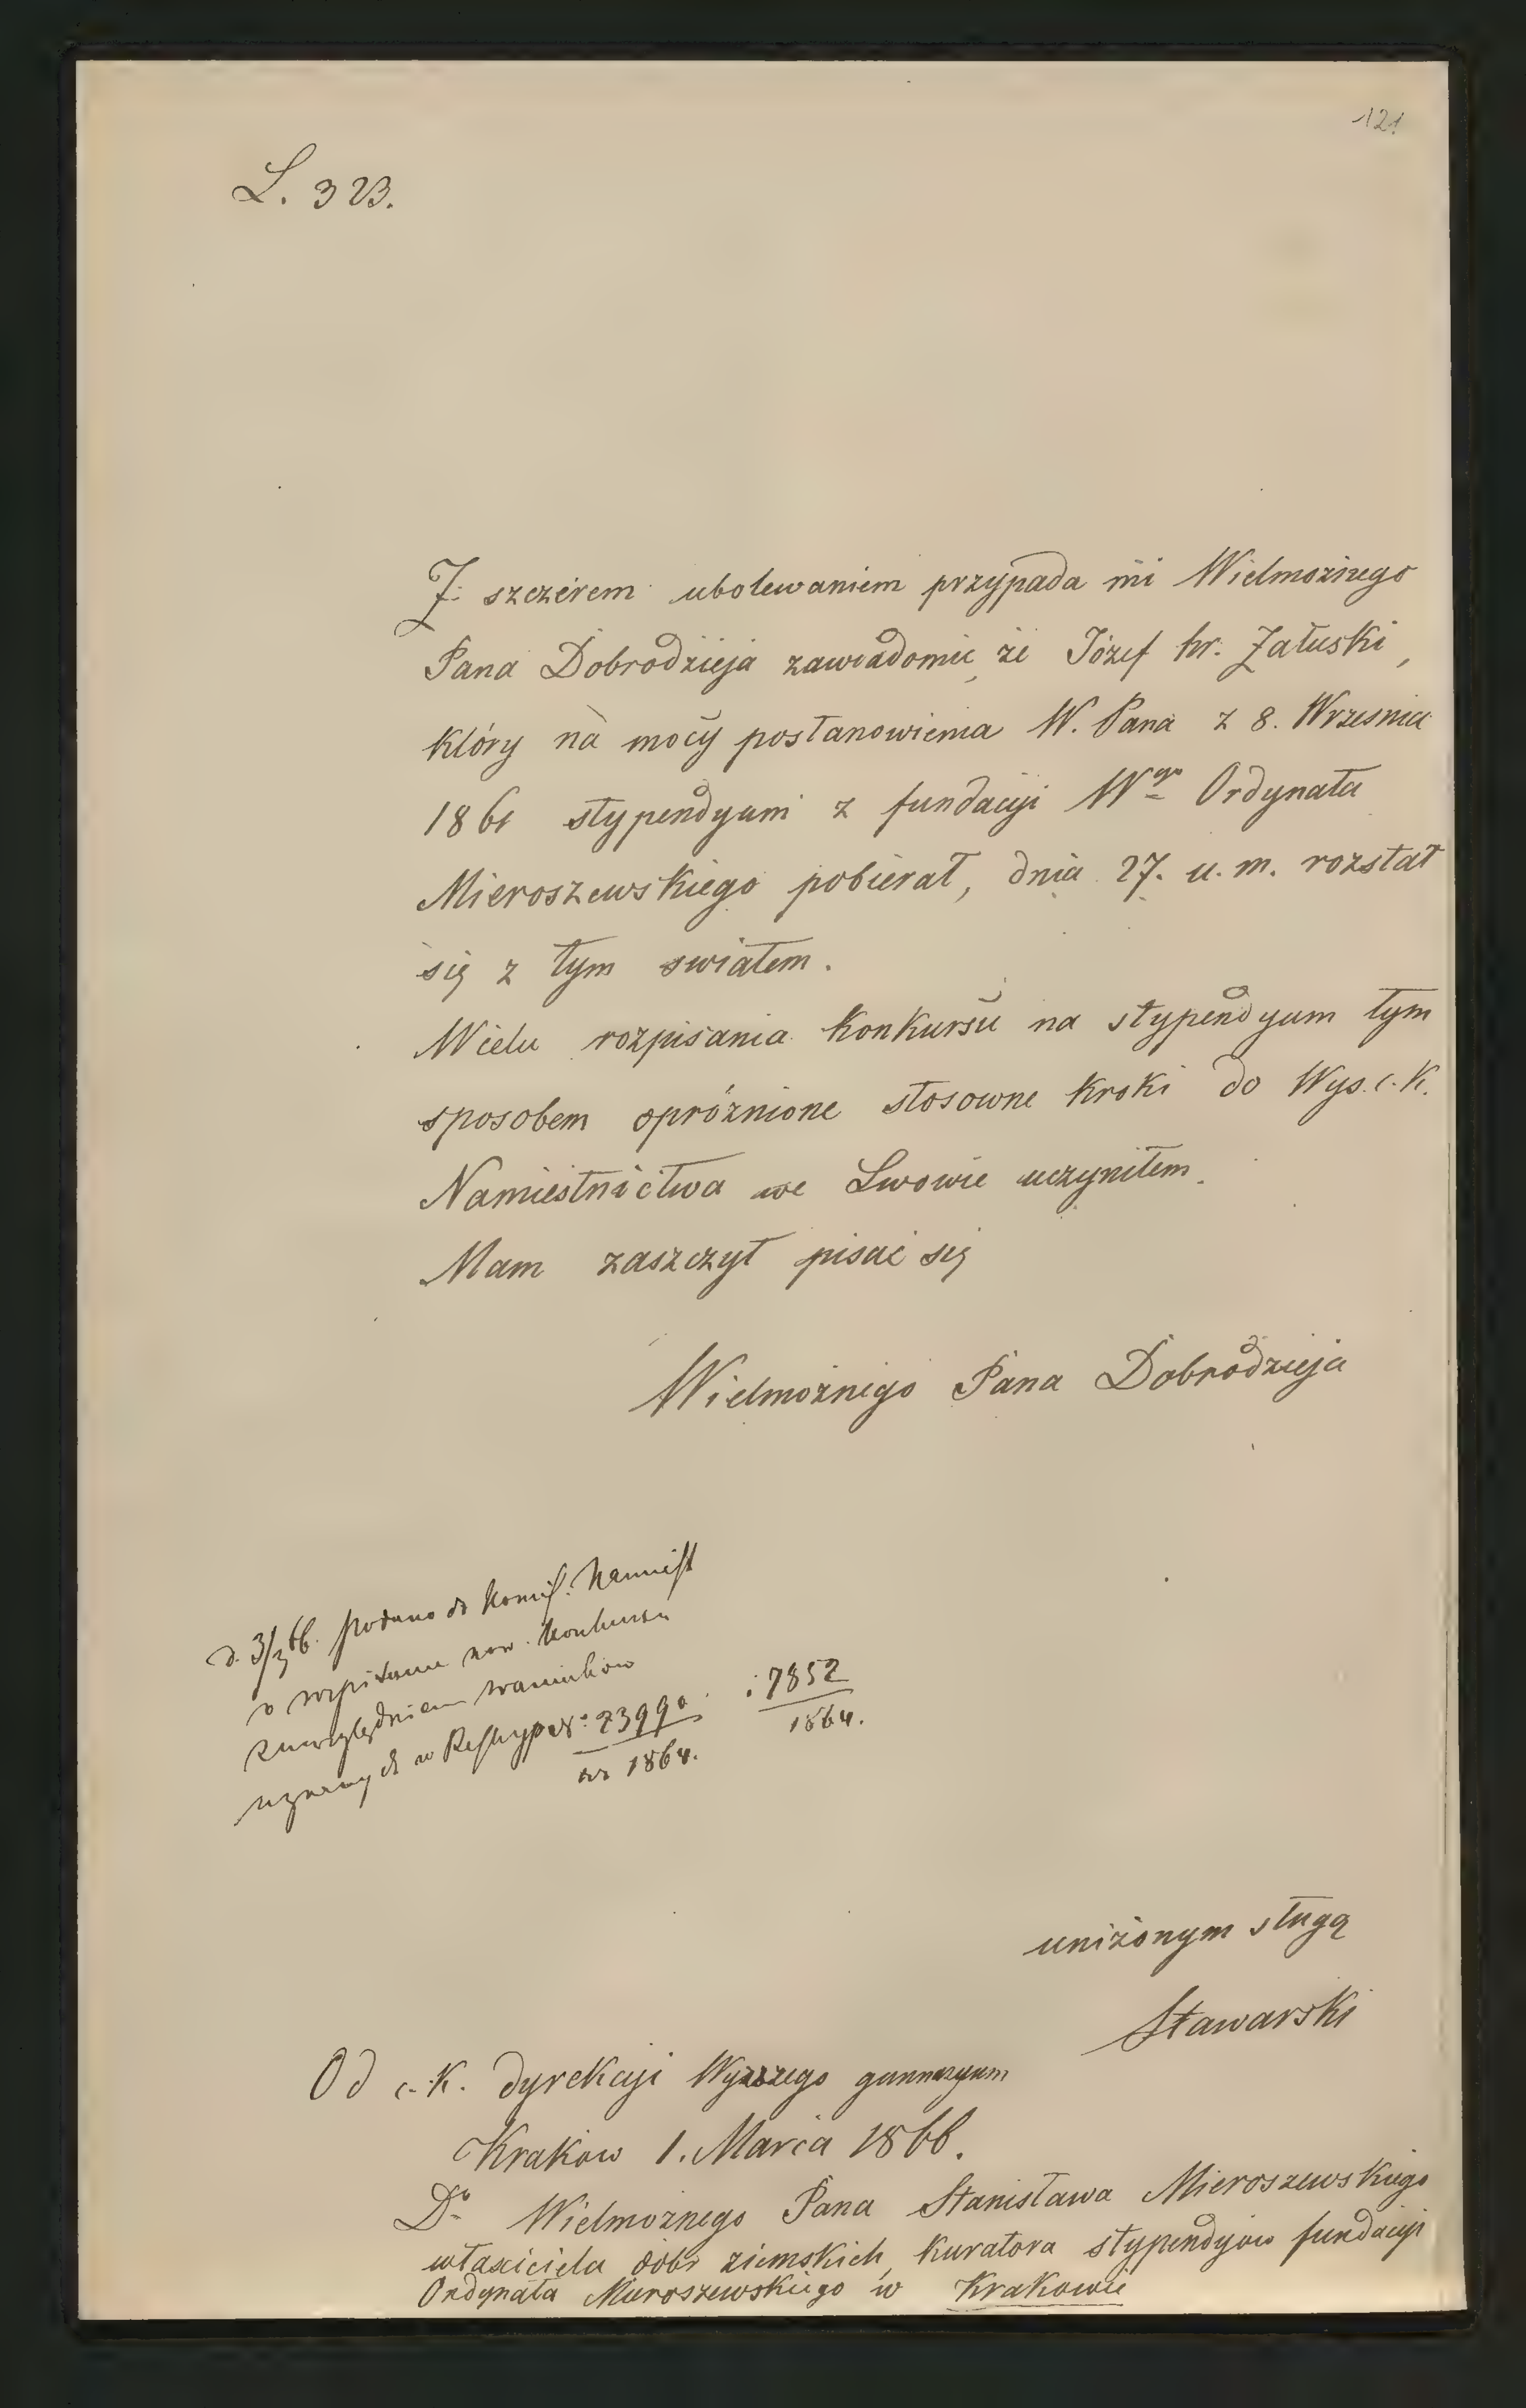 121
L. 323.
Z szczerem ubolewaniem przypada mi Wielmożnego
Pana Dobrodzieja zawiadomić, że Józef hr. Załuski,
który na mocy postanowienia W. Pana z 8. Września
1861 stypendyum z fundacyi Wgo Ordynata
Mieroszewskiego pobierał, dnia 27. u. m. rozstał
się z tym swiatem.
W celu rozpisania konkursu na stypendyum tym
sposobem opróżnione stosowne kroki do Wys. c. K.
Namiestnictwa we Lwowie uczyniłem.
Mam zaszczyt pisać się
Wielmożnego Pana Dobrodzieja
d. 3/3 66. podano do Komis. Namiest
o rozpisanie now. Konkursu
z uwzględnieniem warunków
uznanych w Reskryp. 23990 i 7852
1864. 1864.
uniżonym sługą
Stawarski
Od c. K. dyrekcyi Wyższego gimnazyum
Kraków 1. Marca 1866.
Do Wielmożnego Pana Stanisława Mieroszewskiego
właściciela dóbr ziemskich, Kuratora stypendyów fundacyi
Ordynata Mieroszewskiego w Krakowie